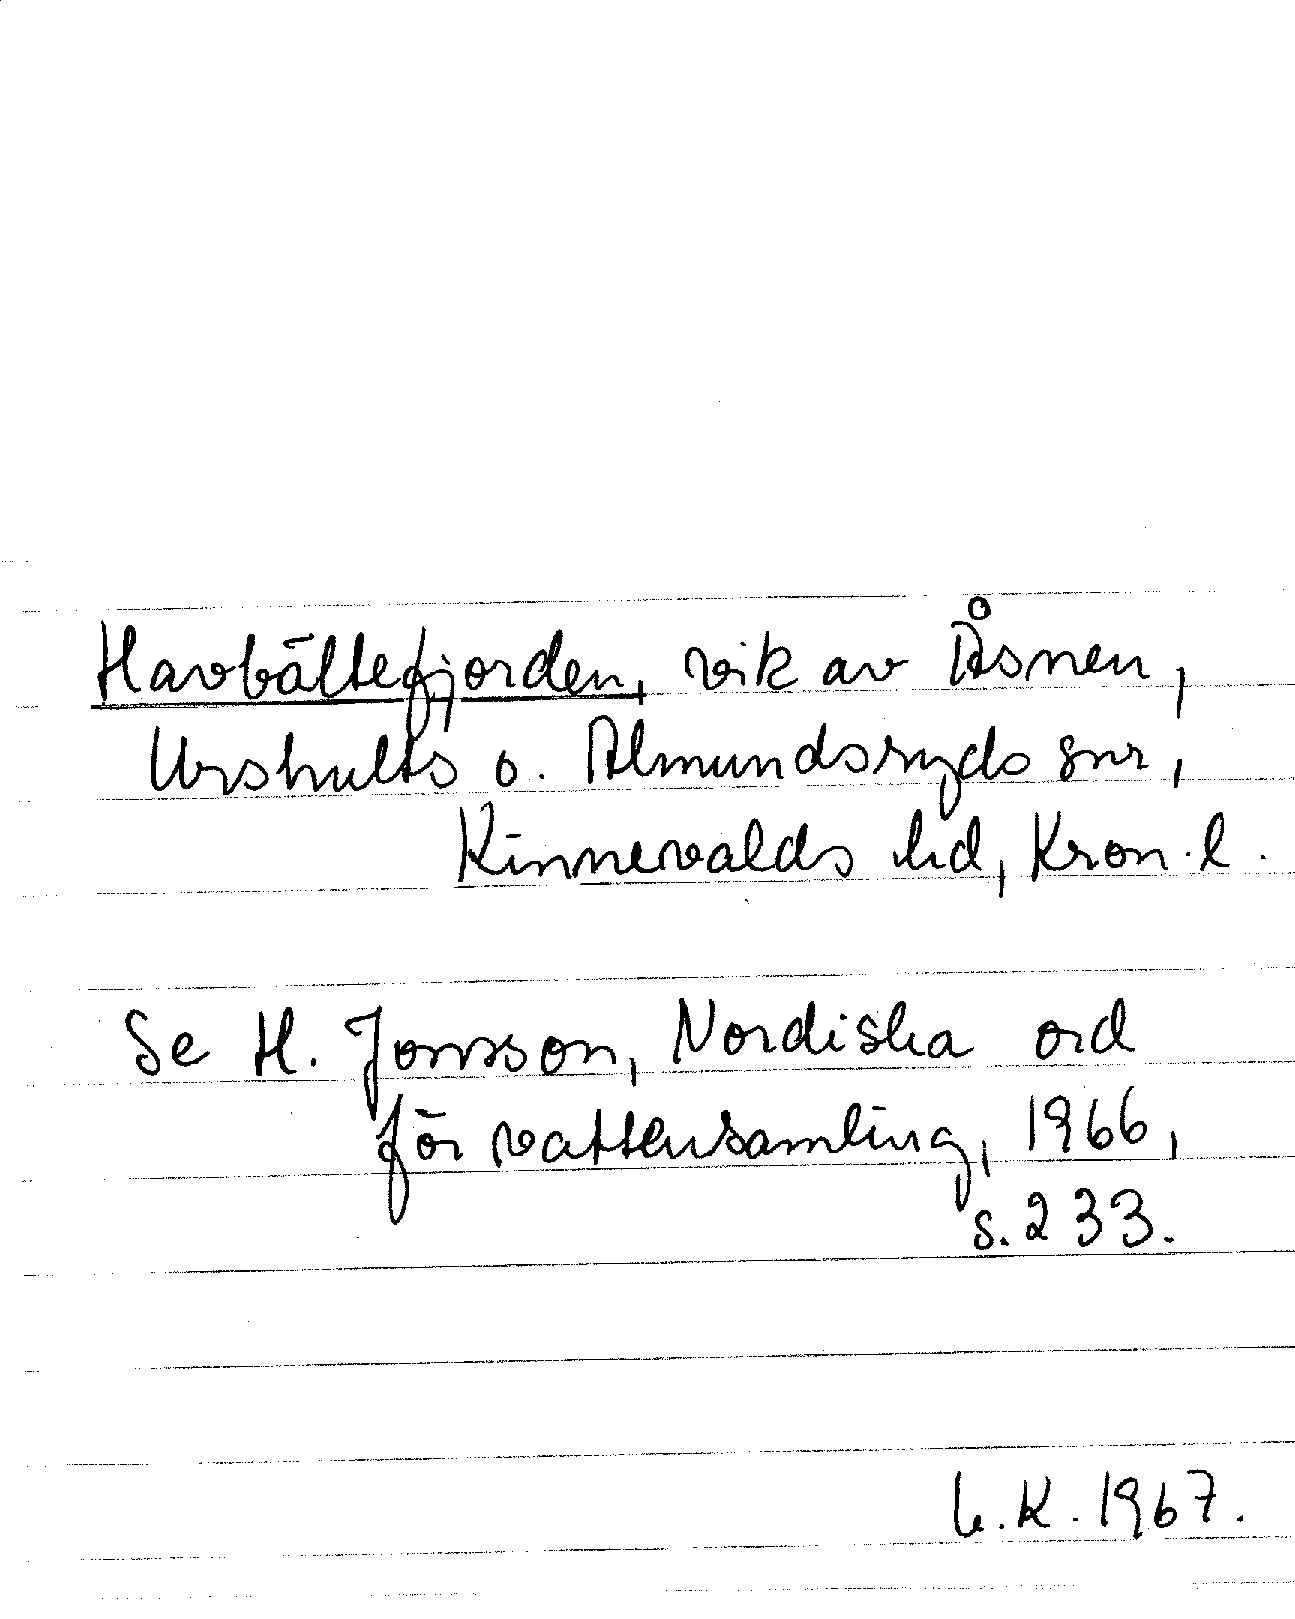 Havbältefjorden, vik av Åsnen,
Urshults o. Almundsryds snr,
Kinnevalds hd, Kron. l.
Se H. Jonsson, Nordiska ord
för vattensamling, 1966,
s. 233.
L. K. 1967.